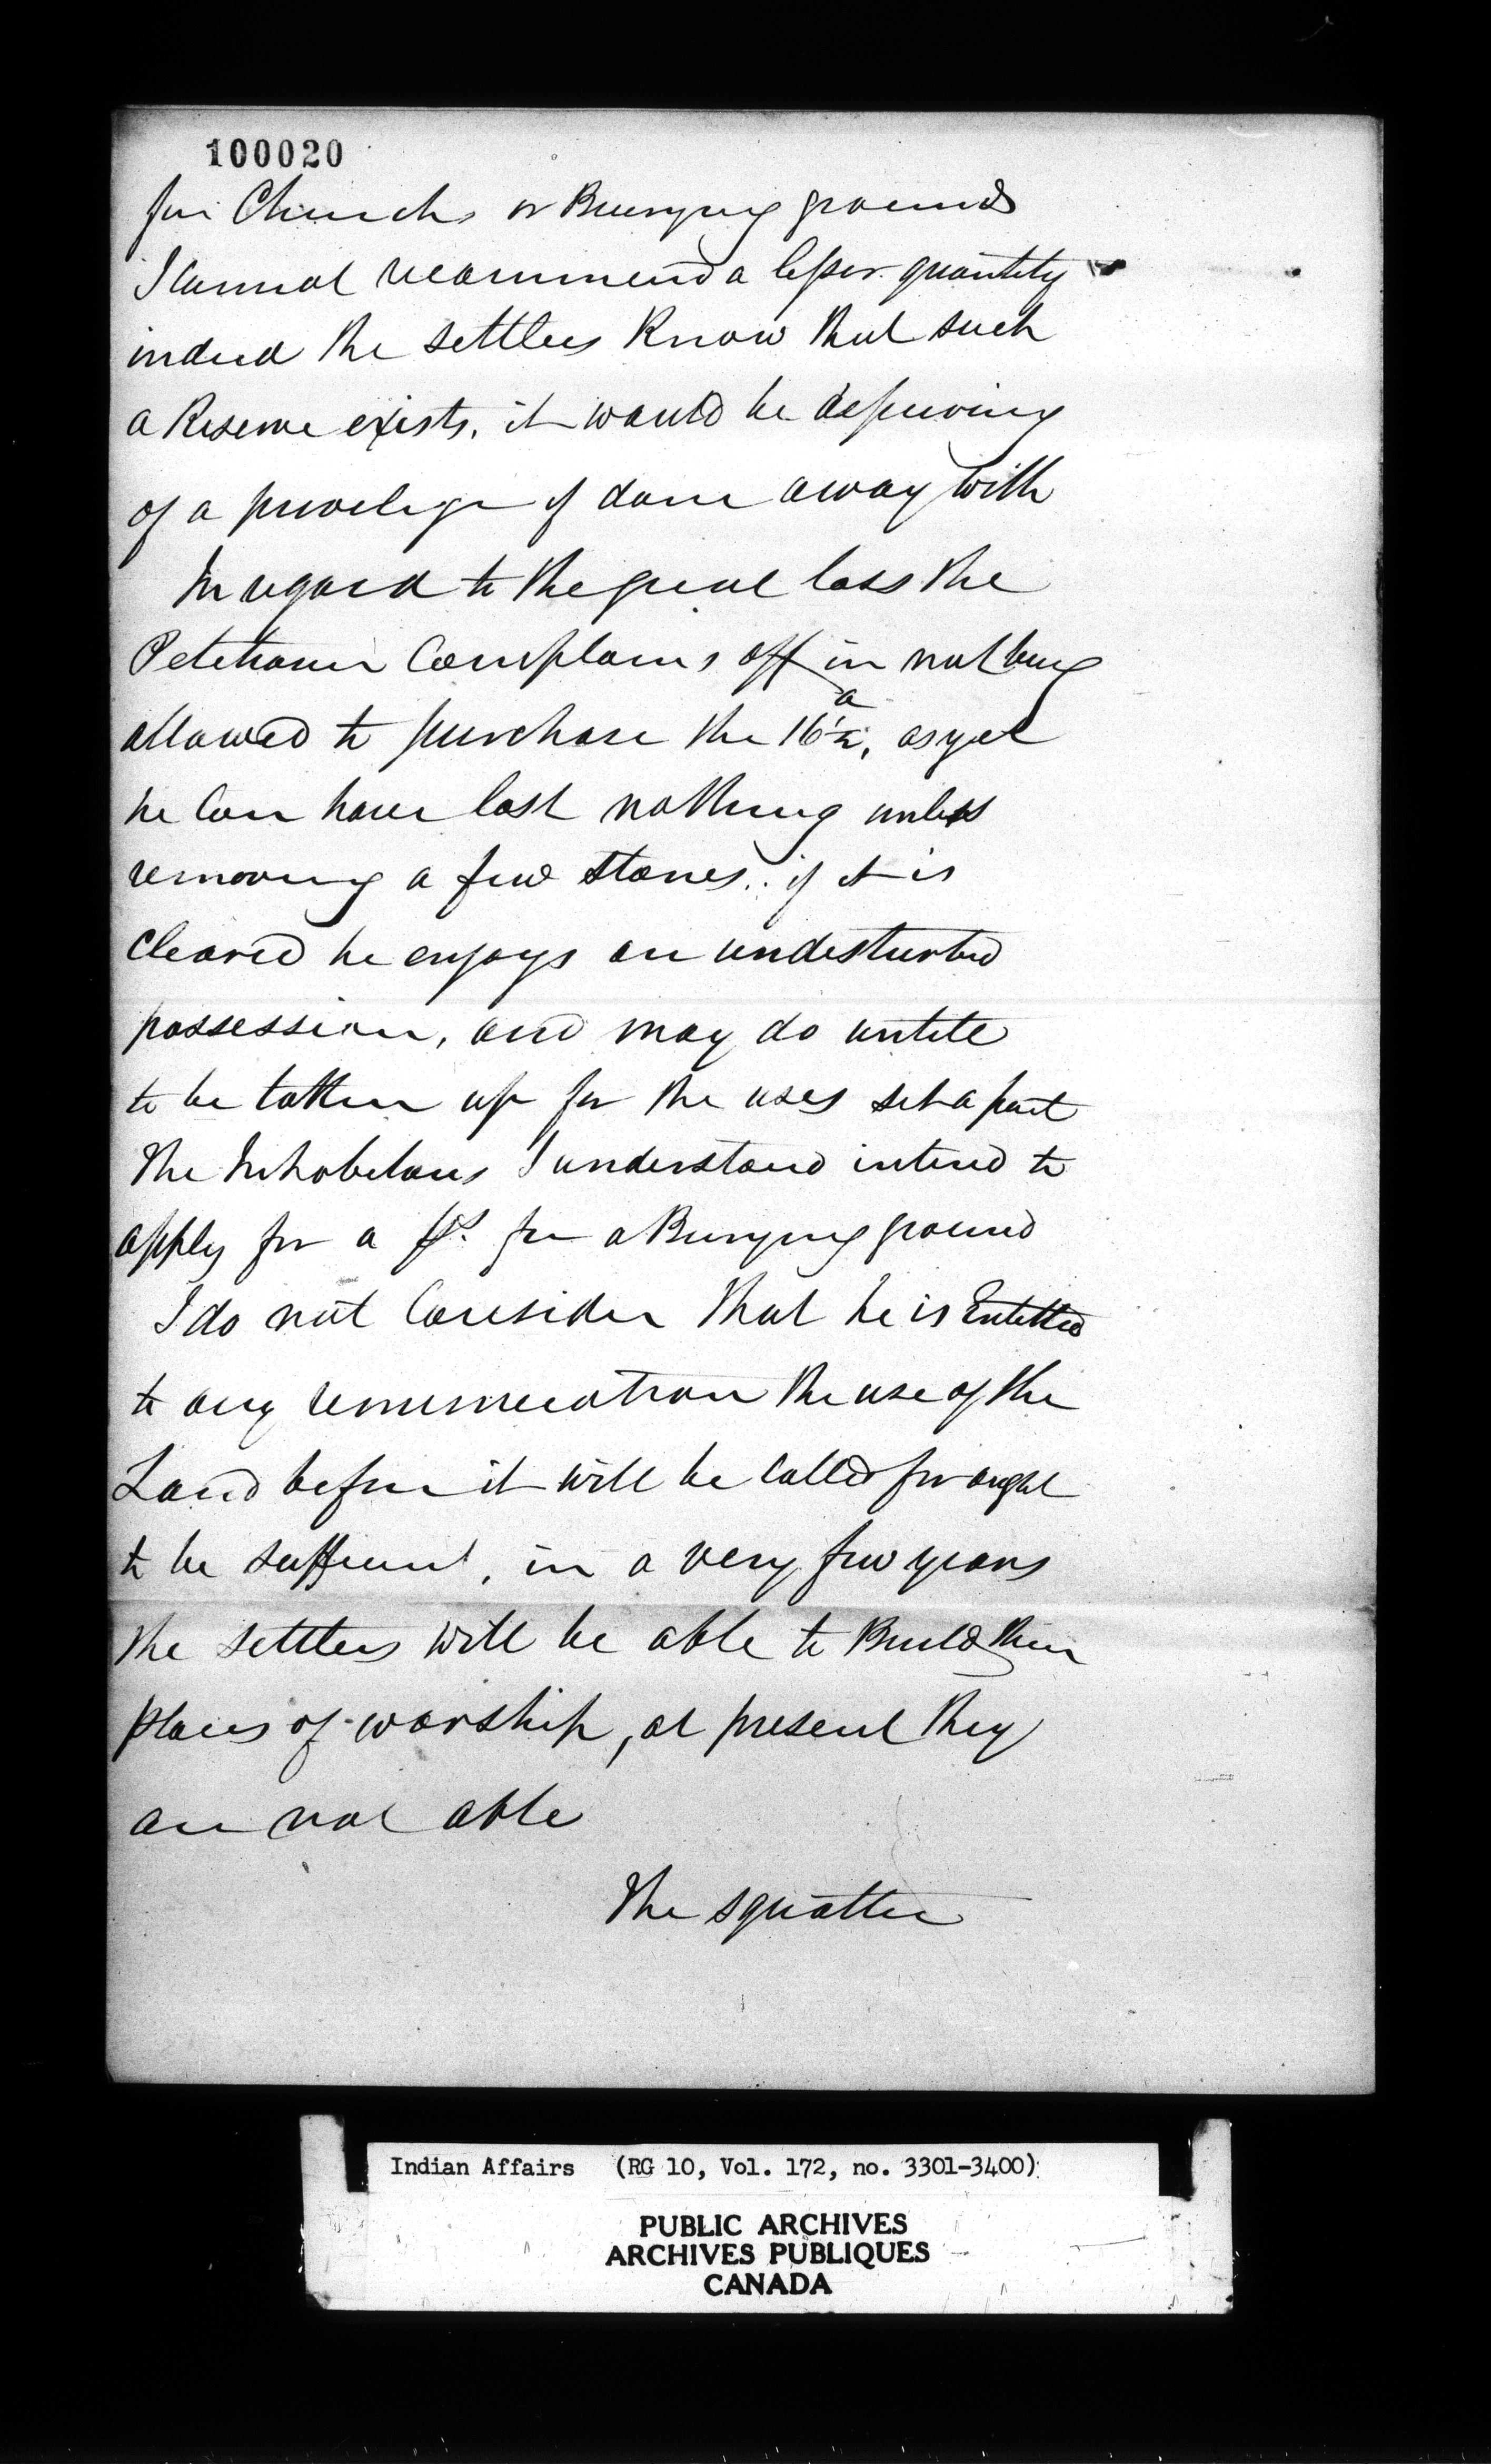 100020
for Church, or Burying grounds
I cannot recommend a lesser quantity
indeed the settlers Know that such
a Reserve exists, it would be depriving
of a privelige if done away with
In regard to the great loss the
Petitioner Complains off in not being
allowed to purchase the 16½ a, as yet
he Can have lost nothing unless
removing a few stones. if it is
Cleared he enjoys an undesturbed
possession, and may do untill
to be takken up for the uses set apart
The Inhabitans I understand intend to
apply for a pt. for a Burying ground
I do not Consider that he is Entitled
to any renumeration the use of the
Land before it will be Called for ought
to be sufficient, in a very few years
the settlers will be able to Build their
places of worship, at present they
are not able
The squatter
Indian Affairs (RG 10, Vol. 172, no. 3301-3400)
PUBLIC ARCHIVES
ARCHIVES PUBLIQUES
CANADA